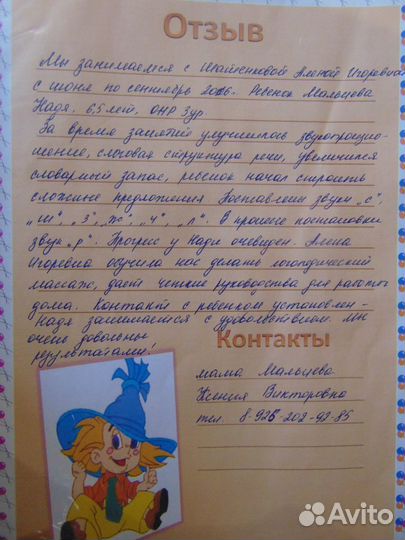 Отзыв
Мы занимаемся с Алёной Игоревной
с июня по сентябрь 2016г. Ребёнок Мальцева
Надя, 6,5 лет, ОНР 3ур.
За время занятий улучшилось звукопроизно-
шение, слоговая структура речи, увеличился
словарный запас, ребёнок начал строить
сложные предложения. Поставлены звуки „с",
„ш", „з", „ж", „ч", „л". В процессе постановки
звук „р". Прогресс у Нади очевиден. Алёна
Игоревна обучила нас делать логопедический
массаж, даёт чёткие руководства для работы
дома. Контакт с ребёнком установлен -
Надя занимается с удовольствием. Мы
очень довольны
результатами!
Контакты
мама Мальцева
Ксения Викторовна
тел. 8-926-202-92-85
Avito